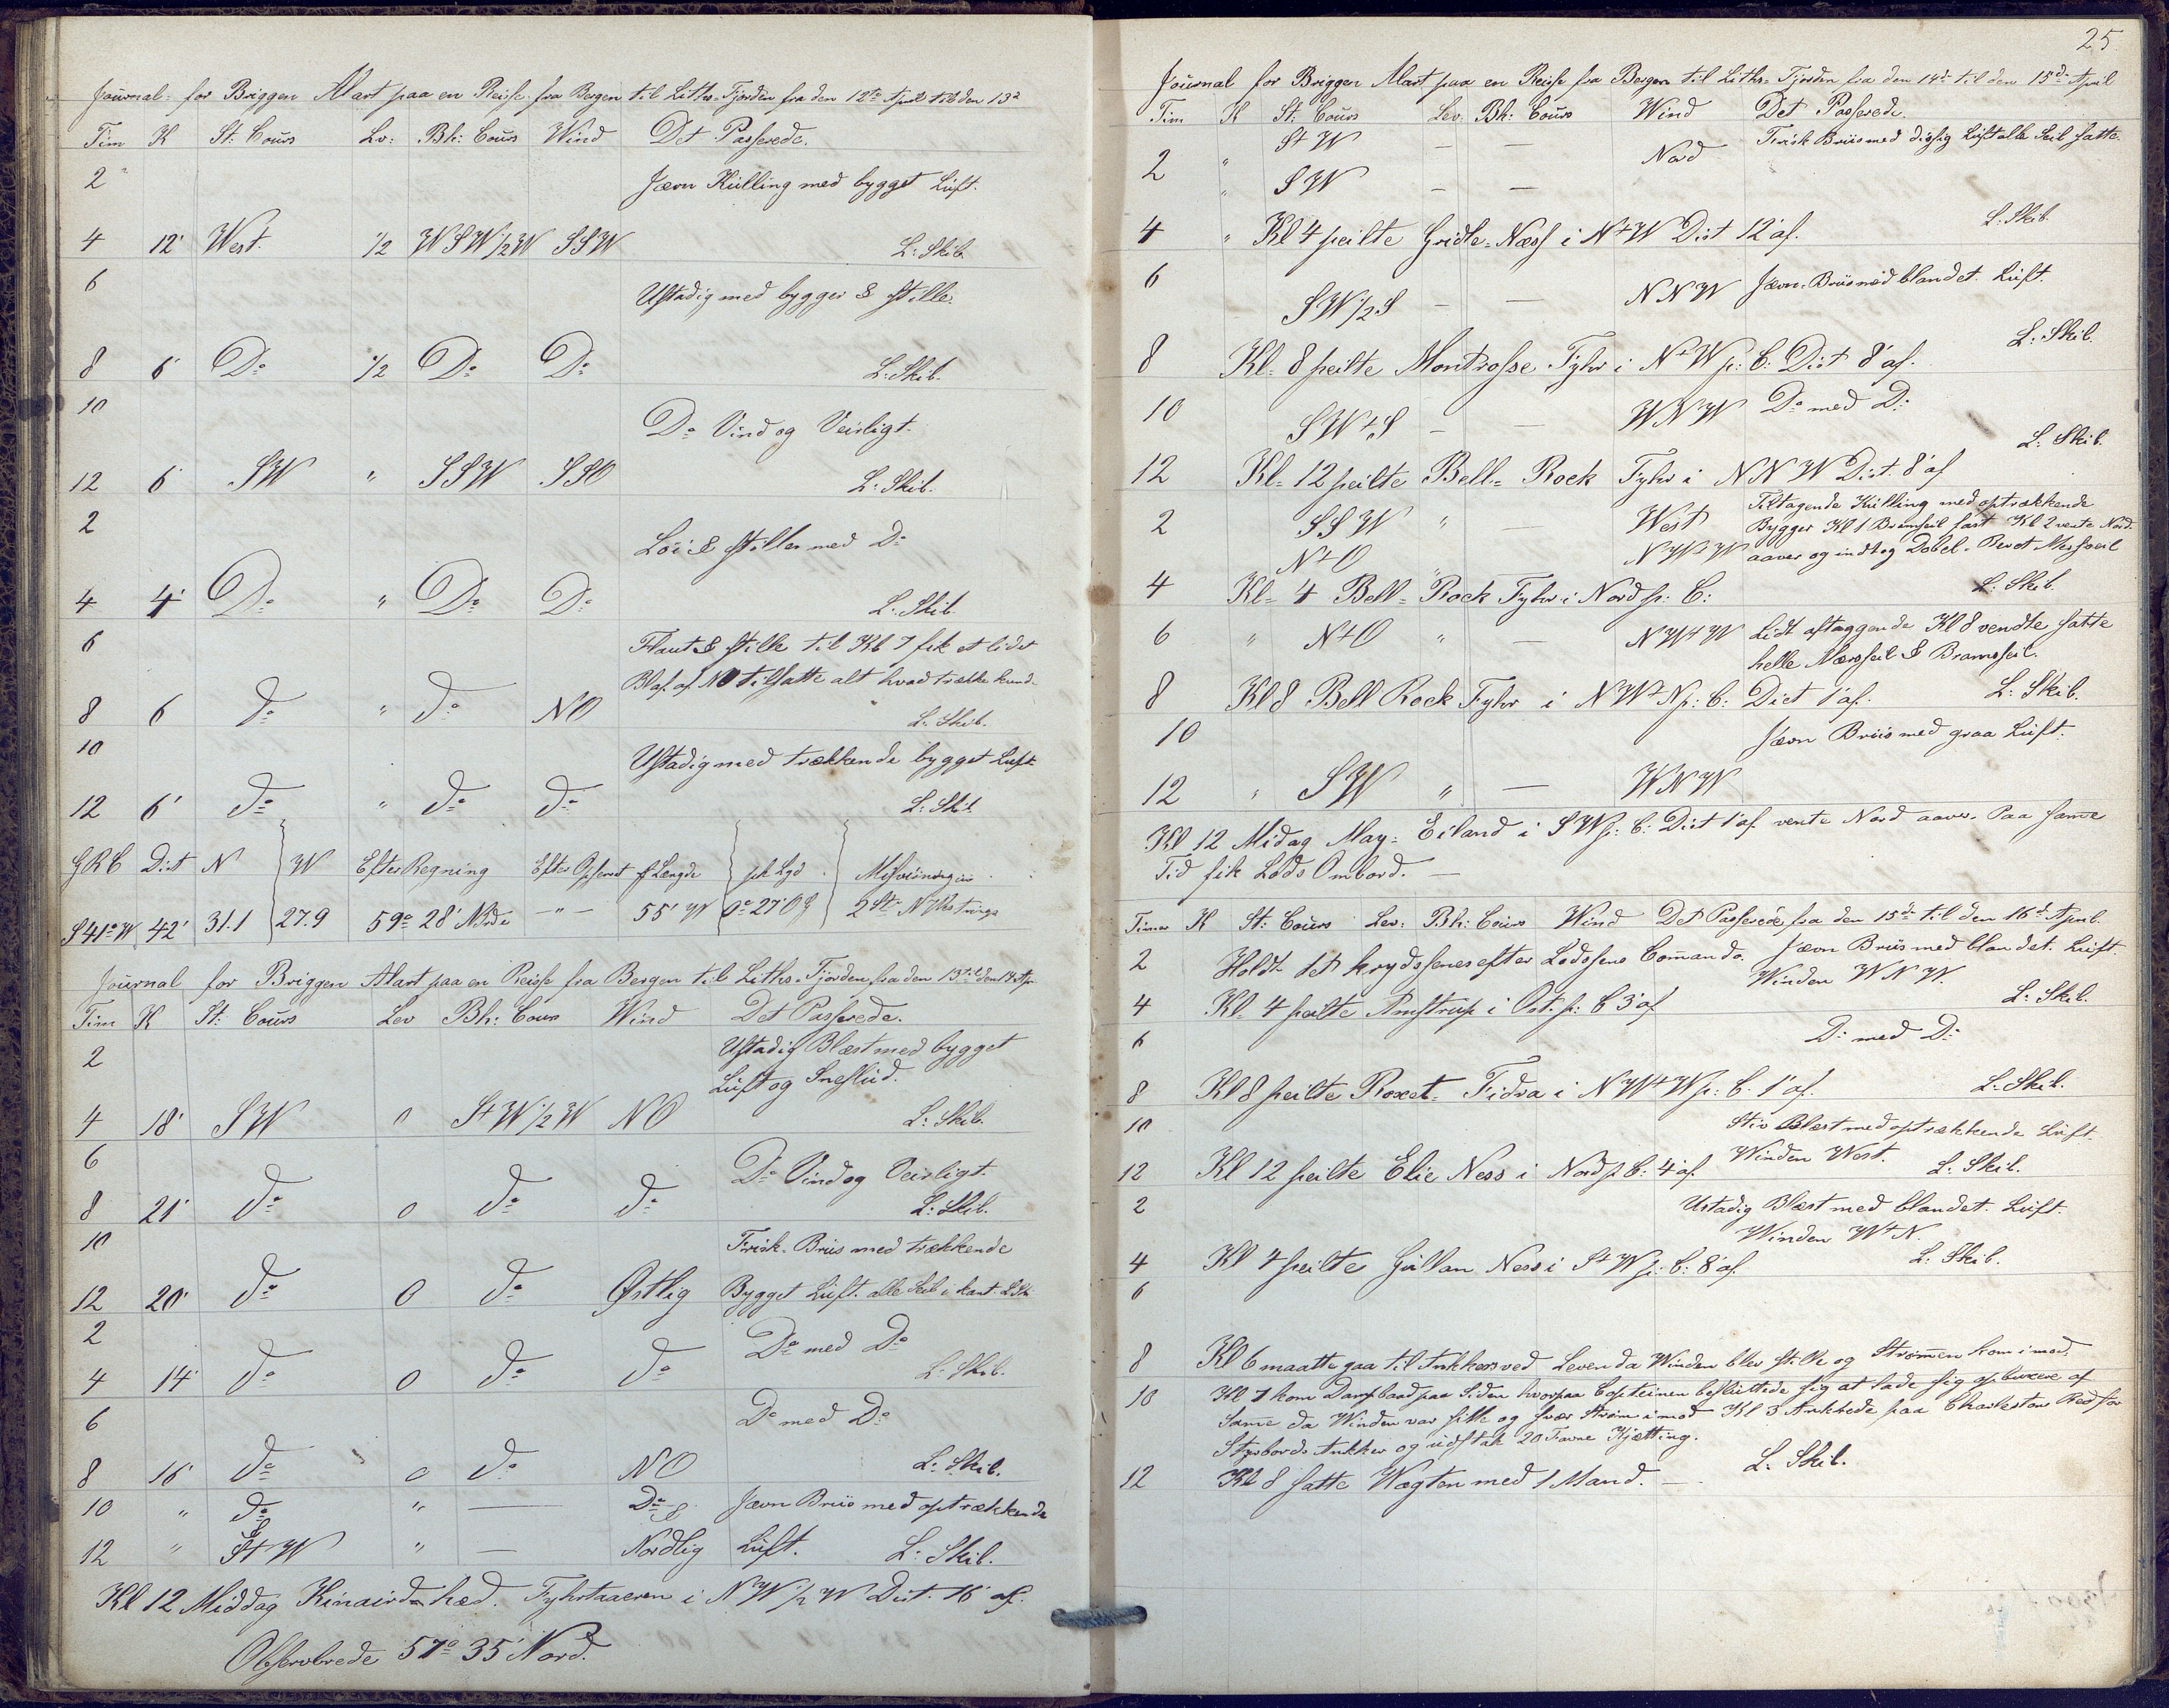 Journal for Briggen Alart paa en Reise fra Bergen til Liths-Fjorden fra den 12te April til den 13de
Tim K St: Cours Lv: Bh: Cours Wind Det Passerede.
2 " Jævn Kulling med bygget Luft.
4 12' West. 1/2 WSW 1/2 W SSW L: Skib.
6 Ustadig med bygger & stille
8 6' Do 1/2 Do Do L: Skib.
10 Do Vind og Veirligt.
12 6' SW " SSW SSO L: Skib.
2 Löi & stille med Do
4 4' Do " Do Do L: Skib
6 Flaut & stille til Kl 7 fik et lidet
Blaf af NO tilsatte alt hvad trække kund
8 6 do " do NO L: Skib.
10 Ustadig med trækkende bygget Luft
12 6' do " do do L: Skib
GRC Dist N W Efter Regning Efter Observt f Længde pk Lgd Misviisningin
S 41° W 42' 31.1 27.9 59° 28' Nrde - " - 55' W 0° 27' O 2 St N Vestings
Journal for Briggen Alart paa en Reise fra Bergen til Liths-Fjorden fra den 13 til den 14 Apr
Tim K St: Cours Lev Bh: Cours Wind Det Passerede.
2 Ustadig Blæst med bygget
Luft og Sneslud.
4 18' SW 0 StW 1/2 W NO L: Skib.
6 Do Vind og Veirligt.
8 21' do 0 do do L: Skib.
10 Frisk Briis med trækkende
12 20' do 0 do Østlig Bygget Luft. alle Seil i kant L Sk
2 Do med Do
4 14' do 0 do do L: Skib.
6 Do med Do
8 16' do 0 do NO L: Skib.
10 " do " — Do & Jævn Briis med optrækkende
12 " StW " — Nordlig Luft. L: Skib.
Kl 12 Middag Kinairdhæd. Fyhrtaaren i NW 1/2 W Dist. 16' af.
Obserbrede 57° 35' Nord.
25
Journal for Briggen Alart paa en Reise fra Bergen til Liths-Fjorden fra den 14de til den 15de April
Tim K St: Cours Lev: Bh: Cours Wind Det Passerede.
2 " StW — — Nord Frisk Briis med disig Luft alle Seil satte.
" SW — —
4 " Kl 4 peilte Gridle-Næss i NtW Dist 12' af. L: Skib.
6 SW 1/2 S — — NNW Jævn Briis med blandet Luft.
8 Kl 8 peilte Montrosse Fyhr i NtW p: C: Dist 8' af. L: Skib.
10 SWtS — — WNW Do med Do
12 Kl 12 peilte Bell-Rock Fyhr i NNW Dist. 8' af L: Skib.
2 SSW " — West Tiltagende Kulling med optrækkende
Bygger Kl 1 Bramseil fast Kl 2 vente Nord
NtO NWtW aaver og indtog Dobel-Revet Mersseil
4 Kl 4 Bell-Rock Fyhr i Nord p: C: L: Skib.
6 " NtO " — NWtW Lidt aftaggende Kl 8 vendte satte
helle Mærsseil & Bramseil.
8 Kl 8 Bell Rock Fyhr i NWtN p: C: Dist 1' af. L: Skib.
10 Jævn Briis med graa Luft.
12 " SW " — WNW
Kl 12 Midag May-Eiland i SW p: C: Dist 1' af. vente Nord aaver. Paa same
Tid fik Lods Ombord. —
Timer K St: Cours Lev: Bh: Cours Wind Det Passerede fra den 15de til den 16de April.
2 Holdt det krydssenes efter Lodssens Commando. Jævn Briis med blandet Luft.
Winden WNW.
4 Kl 4 peilte Anstrup i Ost. p: C 3' af L: Skib.
6 Do med Do
8 Kl 8 peilte Roxet-Fidra i NWtW p: C. 1' af. L: Skib.
10 Stiv Blæst med optrækkende Luft.
12 Kl 12 peilte Elie Ness i Nord p C: 4' af. Winden West. L: Skib.
2 Ustadig Blæst med blandet Luft.
Winden WtN.
4 Kl 4 peilte Gullan Ness i StW p: C: 8' af. L: Skib.
6
8 Kl 6 maatte gaa til Ankkers ved Leven da Winden blev stille og Strömmen kom imod.
10 Kl 7 kom Dampbaad paa Siden hvorpaa Capteinen besluttede sig at lade sig opbuxere af
Same da Winden var stille og svær Ström imod Kl 8 Ankkede paa Charleston Red for
Styrbords Ankker og udstak 20 Favne Kjætting.
12 Kl 8 satte Wagten med 1 Mand. — L: Skib.